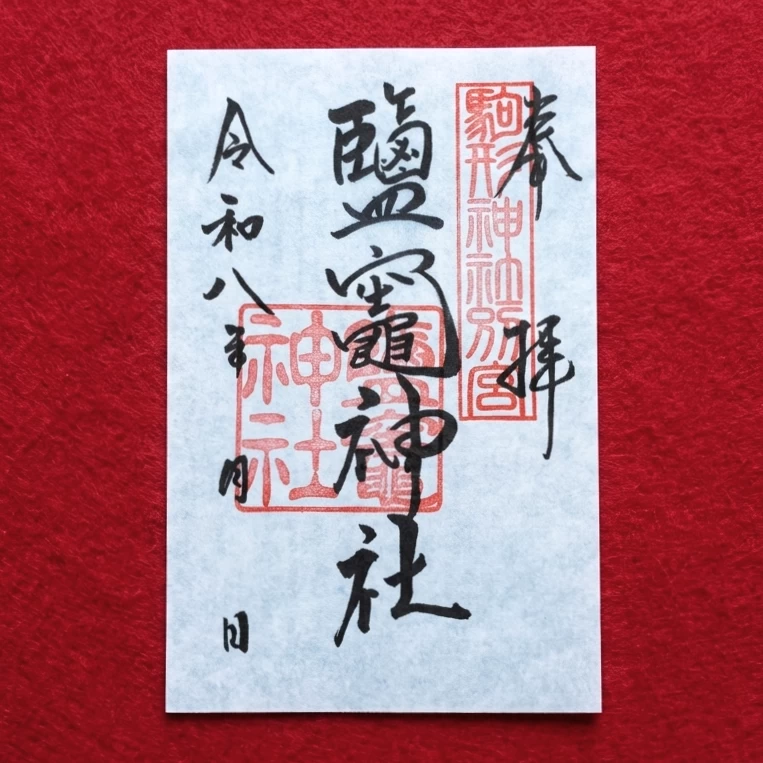 奉拝
駒形神社別宮
鹽竈神社
鹽竈神社
令和八年 月 日